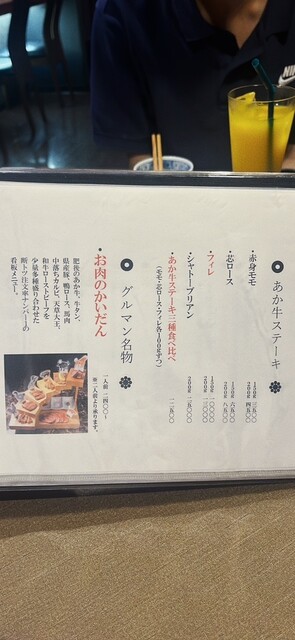 NIKE
あか牛ステーキ
・赤身モモ
150g 三五〇〇
200g 四五〇〇
・芯ロース
150g 六五〇〇
200g 八五〇〇
・フィレ
150g 一〇〇〇〇
200g 一三〇〇〇
・シャトーブリアン
200g 二五〇〇〇
・あか牛ステーキ三種食べ比べ
(モモ・芯ロース・フィレ各100gずつ)
一二五〇〇
グルマン名物
・お肉のかいだん
一人前 二四八〇〜
※二人前より承ります。
肥後のあか牛、牛タン、
県産豚、鴨ロース、馬肉
中落ちカルビ、天草大王、
和牛ローストビーフを
少量多種盛り合わせた
断トツ注文率ナンバー1の
看板メニュー。